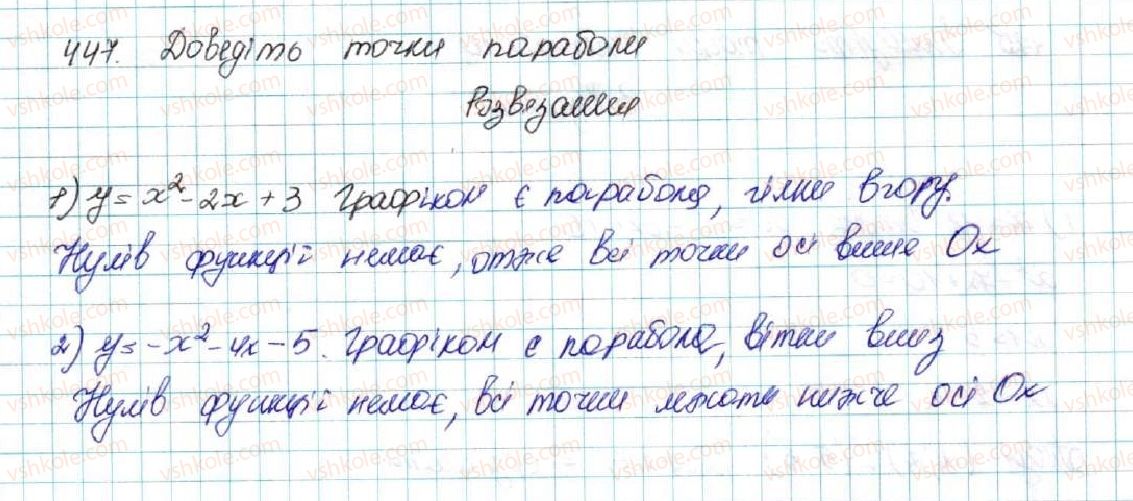 447. Доведіть точки параболи
Розвязання
1) y = x² - 2x + 3 Графіком є парабола, гілки вгору.
Нулів функцій немає, отже всі точки осі вище Ox
2) y = -x² - 4x - 5. Графіком є парабола, вітки вниз
Нулів функцій немає, всі точки лежать нижче осі Ox
vshkole.com